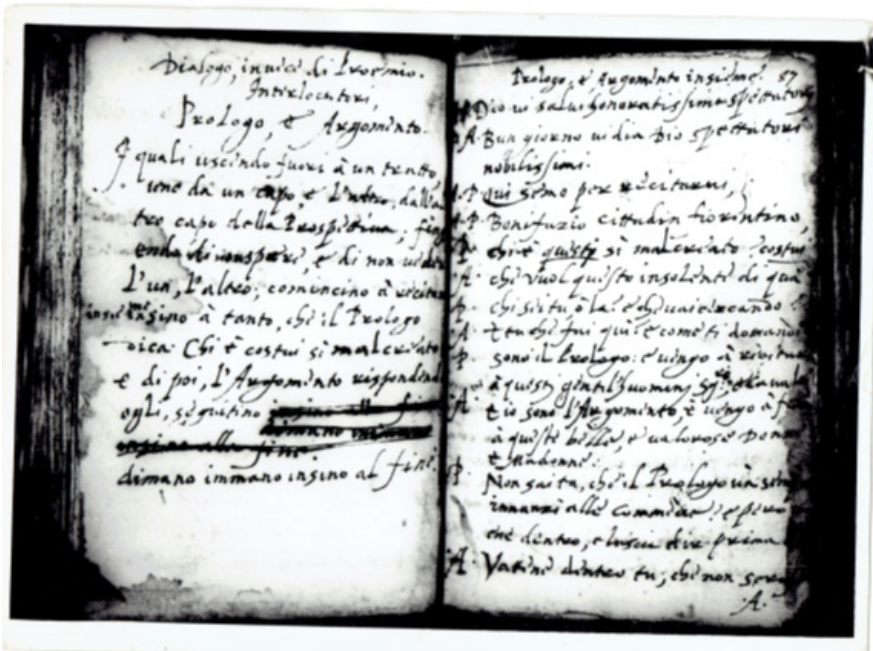 Dialogo, invece di Proemio.
Interlocutori,
Prologo, e Argomento.
I quali uscendo fuori à un tratto,
uno da un capo e l'altro, dall'al
tro capo della Prospettiva; fing
endo di non , e di non veder
l'un, l'altro; comincino à recitar
insieme insino à tanto, che il Prologo
dica: Chi è costui sì malcreato
e di poi, l'Argomento rispondend
ogli, seguitino
insino alla fine
dimano immano insino al fine.
Prologo, e Argomento insieme. 87
P. Dio vi salvi honoratissimi spettatori
A. Bun giorno vi dia Dio spettatori
nobilissimi.
A.P. qui semo per recitarvi,
A.P. Bonifazio cittadin fiorentino,
P. chi è questi sì malcreato? costui
A. che vuol questo insolente di qua
P. chi sei tu, ò là? e che vai cercando?
A. E tu che fai qui? e come ti domandi
P. sono il Prologo: e vengo à recitar
à questi gentil'huomini
A. E io sono l'Argomento, e vengo à far
à queste belle, e valorose Donne
e Madonne.
P. Non sai tu, che il Prologo và semp
innanzi alle Commedie? e però
che dentro, e lascia dire prima
A. Vatene dentro tu, che non serv
A.